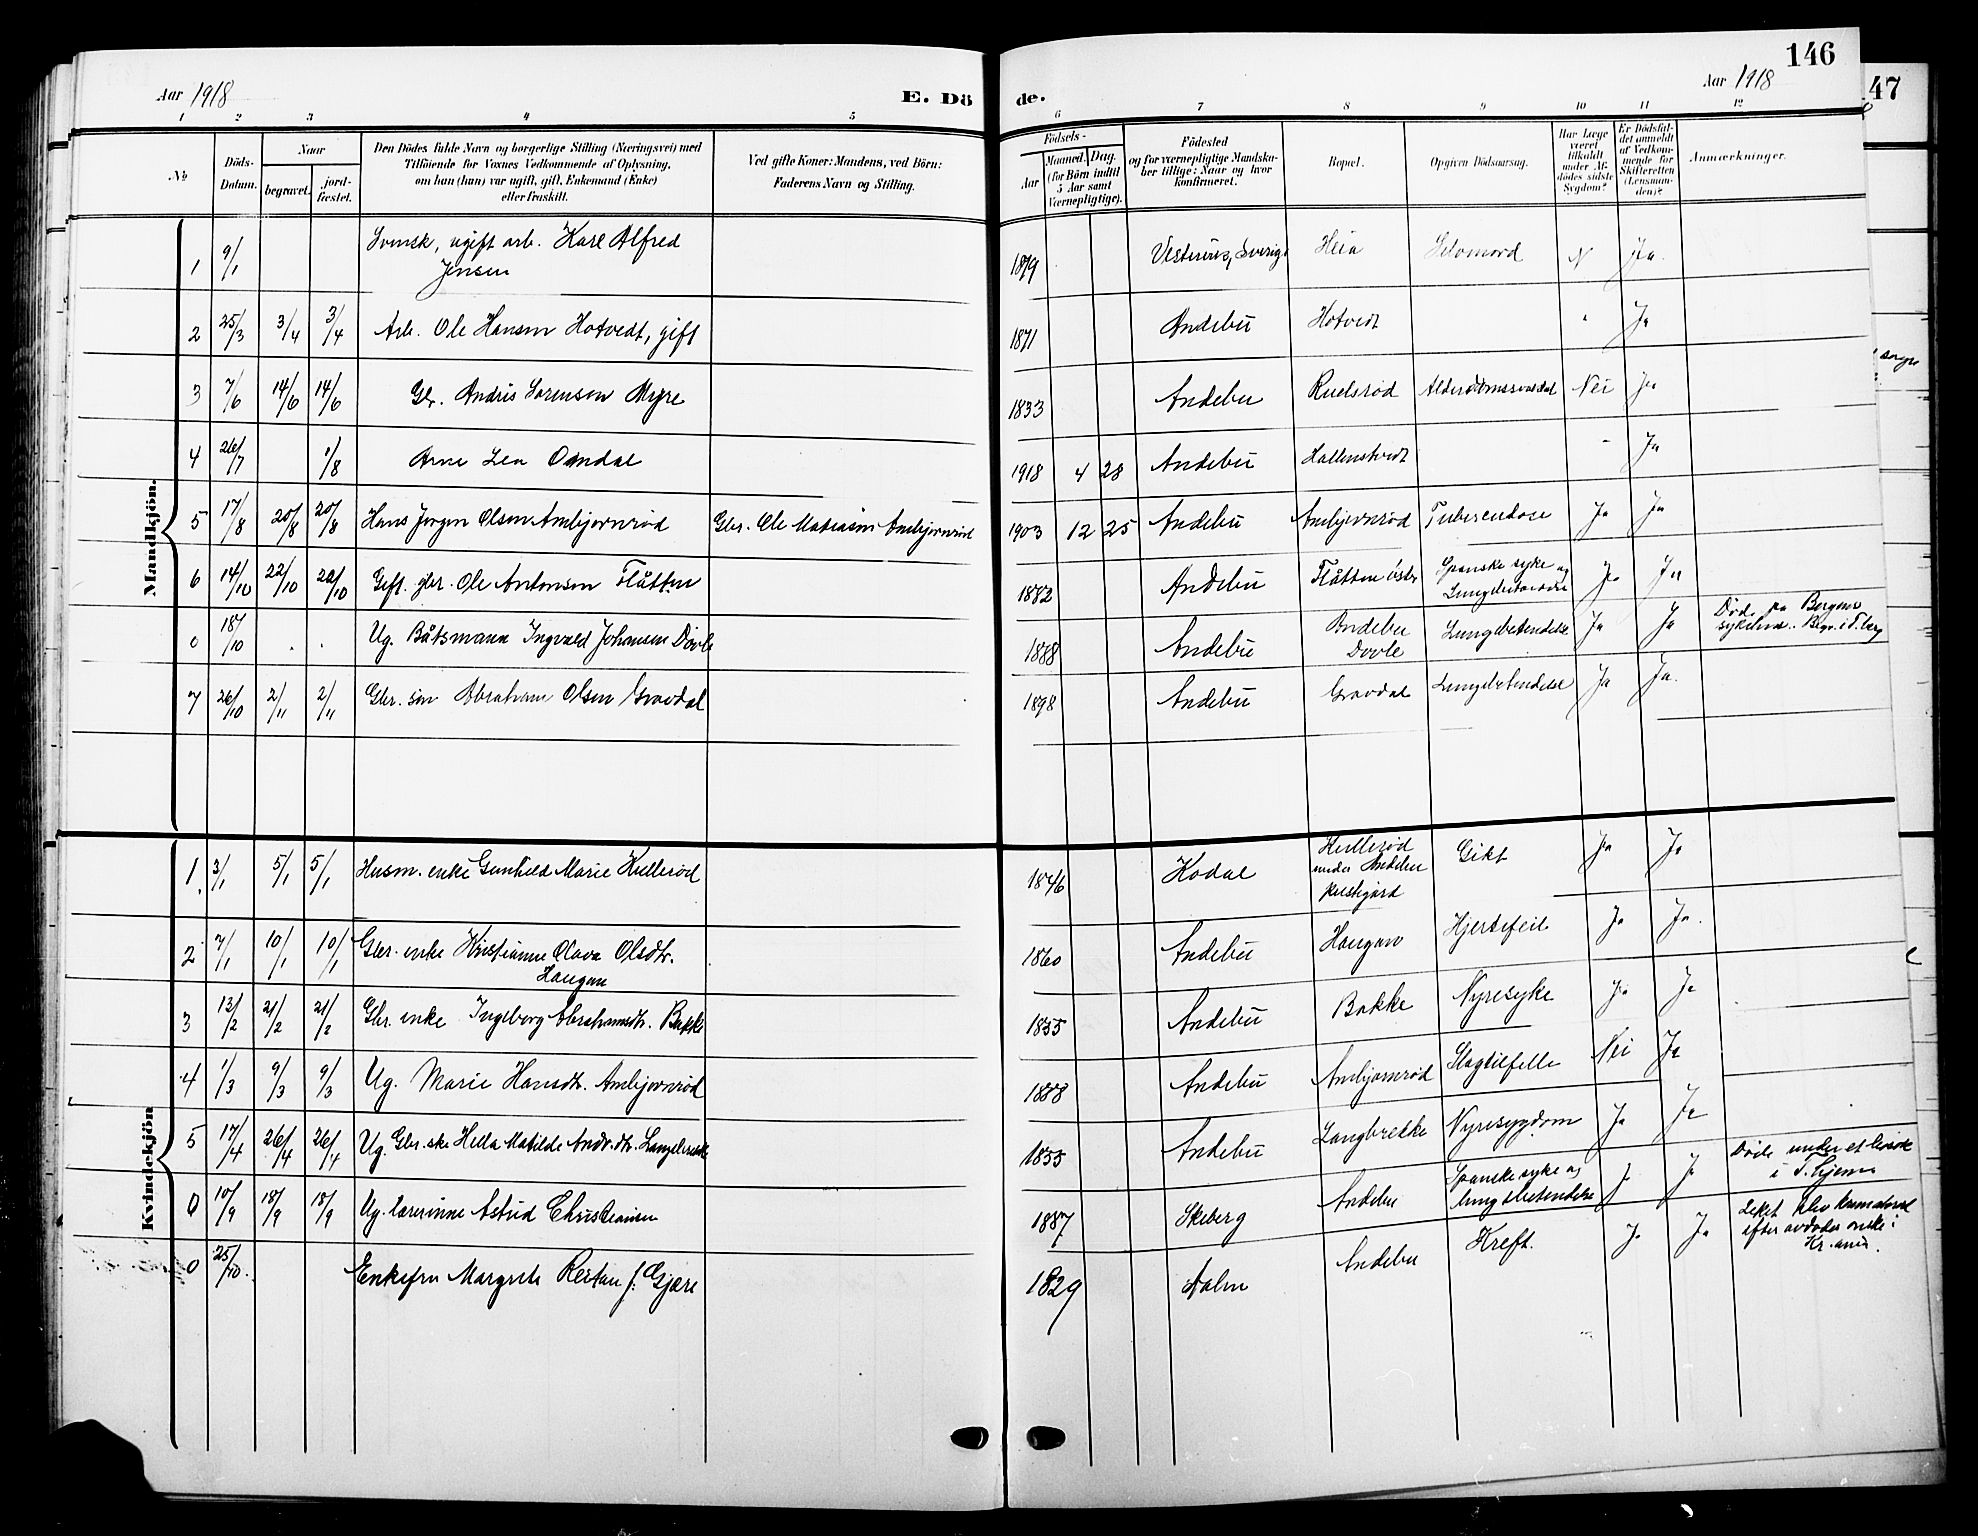 146
47
Aar 1918
E. Dö
de.
Aar 1918
1 2 3 4 5 6 7 8 9 10 11 12
No
Döds-Datum.
Naar
begravet.
jord-fæstet.
Den Dödes fulde Navn og borgerlige Stilling (Næringsvei) med
Tilföiende for Voxnes Vedkommende af Oplysning,
om han (hun) var ugift, gift, Enkemand (Enke)
eller fraskilt.
Ved gifte Koner: Mandens, ved Börn:
Faderens Navn og Stilling.
Födsels-
Aar
Maaned. Dag.
(for Börn indtil
5 Aar samt
Værnepligtige).
Födested
og for værnepligtige Mandska-
ber tillige: Naar og hvor
konfirmeret.
Bopæl.
Opgiven Dödsaarsag.
Har Læge
været
tilkaldt
under Af-
dödes sidste
Sygdom?
Er Dödsfal-
det anmeldt
af Vedkom-
mende for
Skifteretten
(Lensman-
den)?
Anmærkninger.
Mandkjön.
1 9/1 Svensk, ugift arb. Karl Alfred
Jensen 1879 Sverige Heia Selvmord N Ja.
2 25/3 3/4 3/4 Arb. Ole Hansen Hotvedt, gift 1871 Andebu Hotvedt Ja
3 7/6 14/6 14/6 Gbr. Andris Sørensen Myre 1833 Andebu Ruelsrød Nei Ja
4 26/7 1/8 Arne Lea Omdal 1918 4 28 Andebu Hallenstvedt Ja
5 17/8 20/8 20/8 Hans Jørgen Olsen Ambjørnrød Gbr. Ole Matiasen Ambjørnrød 1903 12 25 Andebu Ambjørnrød Tuberculose Ja Ja
6 14/10 22/10 22/10 Gift. gbr. Ole Antonsen Flåtten 1882 Andebu Flåtten østre Spanske syke og
Lungebetændelse Ja Ja
0 18/10 Ug. Båtsmann Ingvald Johansen Døvle 1888 Andebu Andebu
Døvle Lungebetendelse Ja Ja Død på Bergens
sykehus. Begr. i T.berg
7 26/10 2/11 2/11 Gbr. søn Abraham Olsen Gravdal 1898 Andebu Gravdal Lungebetendelse Ja Ja.
Kvindekjön
1. 3/1 5/1 5/1 Husm. enke Gunhild Marie Kullerød 1846 Kodal Kullerød
under Andebu
prestegård Gikt Ja Ja
2 7/1 10/1 10/1 Gbr. enke Kristianne Olava Olsdtr.
Haugan 1860 Andebu Haugan Hjertefeil Ja Ja.
3 13/2 21/2 21/2 Gbr. enke Ingeborg Abrahamsdtr. Bakke 1855 Andebu Bakke Nyresyke Ja Ja
4 1/3 9/3 9/3 Ug. Marie Hansdtr. Ambjørnrød 1888 Andebu Ambjørnrød Slagtilfelle Nei Ja
5 17/4 26/4 26/4 Ug. Gbr.ske Hella Matilde Andr.dtr. Langbrekke 1855 Andebu Langbrekke Nyresygdom Ja Ja
0 10/9 18/9 18/9 Ug. lærerinne Astrid Christiansen 1887 Skeberg Andebu Spanske syke og
lungebetendelse J. J. Døde under et besøk
i T.hjem
0 25/10. Enkefru Margrete Restan f. Gjære 1829 Andebu Kreft. Ja Ja Liket blev kremateret
efter avdødes ønske i
Kr.ania.